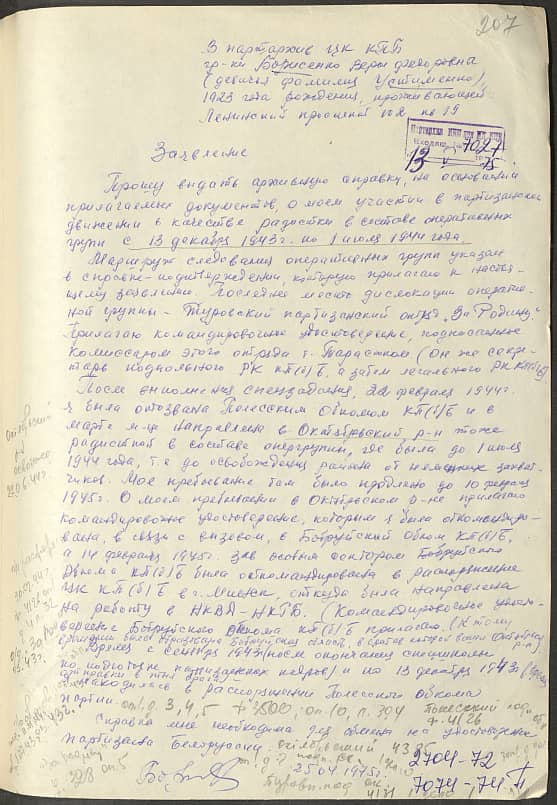 207
В партархив ЦК КПБ
гр-ки Борисенко Веры Федоровны
(девичья фамилия Устименко),
1923 года рождения, проживающей
Ленинский проспект кв 19
7021
13 V 75
Заявление
Прошу выдать архивную справку, на основании
прилагаемых документов, о моем участии в партизанском
движении в качестве радистки в составе оперативных
групп с 13 декабря 1943 г. по 1 июля 1944 года.
Маршрут следования оперативных групп указан
в справке-подтверждении, которую прилагаю к настоя-
щему заявлению. Последнее место дислокации оператив-
ной группы - Туровский партизанский отряд "За Родину".
Прилагаю командировочное удостоверение, подписанное
комиссаром этого отряда т. (Он же секре-
тарь подпольного РК КП(б)Б, а затем легального РК КП(б)Б)
После выполнения спецзадания, 22 февраля 1944 г.
я была отозвана Полесским Обкомом КП(б)Б и в
марте м-це направлена в Октябрьский р-н тоже
радисткой в составе опергруппы, где была до 1 июля
1944 года, т.е до освобождения района от немецких захват-
чиков. Мое пребывание там было продлено до 10 февраля
1945 г. О моем пребывании в Октябрьском р-не прилагаю
командировочное удостоверение, которым я была откомандиро-
вана, в связи с вызовом, в Бобруйский обком КП(б)Б,
а 14 февраля 1945 г. зав особым сектором Бобруйского
Обкома КП(б)Б была откомандирована в распоряжение
ЦК КП(б)Б в г. Минск, откуда была направлена
на работу в НКВД-НКГБ. (Командировочное удосто-
верение Бобруйского Обкома КП(б)Б прилагаю. (К тому
времени была Бобруйская область, в состав которой вошел Октябрьский р-н)
Время с сентября 1943 (после окончания спецшколы
по подготовке партизанских кадров) и по 13 декабря 1943 г.
находилась в распоряжении Полесского обкома
партии. 3, 4, 5 ф. 3500, оп. 10,
Справка мне необходима для обмена на удостоверение
партизана Белоруссии.
25.04.1975 г.
2704-72
7074-74 П